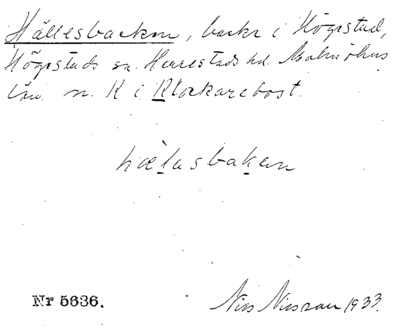 Hällesbacken, backe i Högestad,
Högestads sn. Herrestads hd. Malmöhus
län. n. K i Klockarebost.
hælasbakan
Nr 5636.
Nils Nilsson 1933.